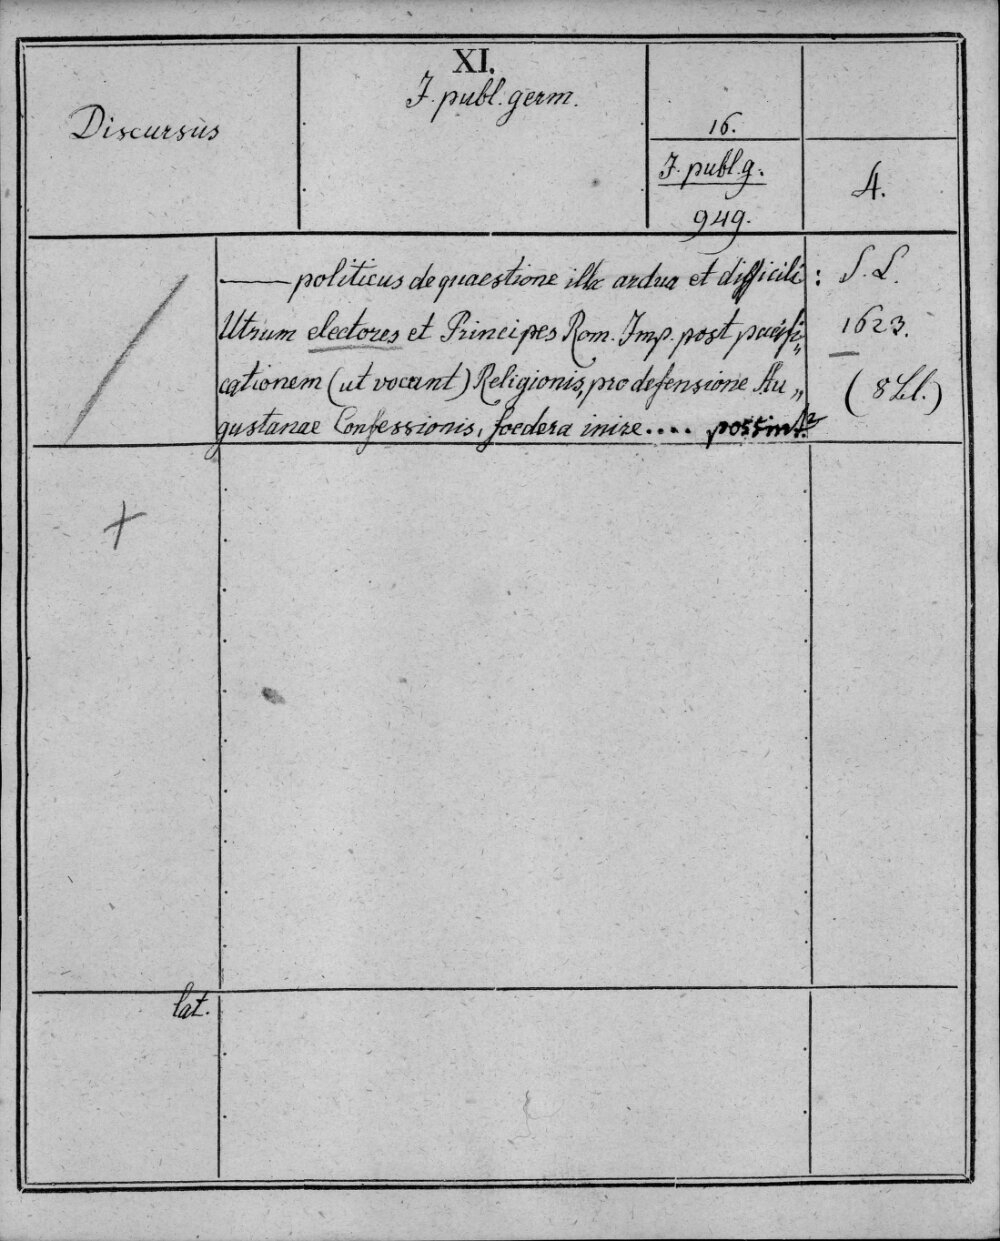 XI.
J. publ. germ.
Discursus
16.
J. publ. g.
949.
4.
—— politicus de quaestione illa ardua et difficili:
Utrum electores et Principes Rom. Imp. post pacifi„
cationem (ut vocant) Religionis, pro defensione Au„
gustanae Confessionis, foedera inire .... possint?
S. L.
1623.
(8 Ll.)
lat.